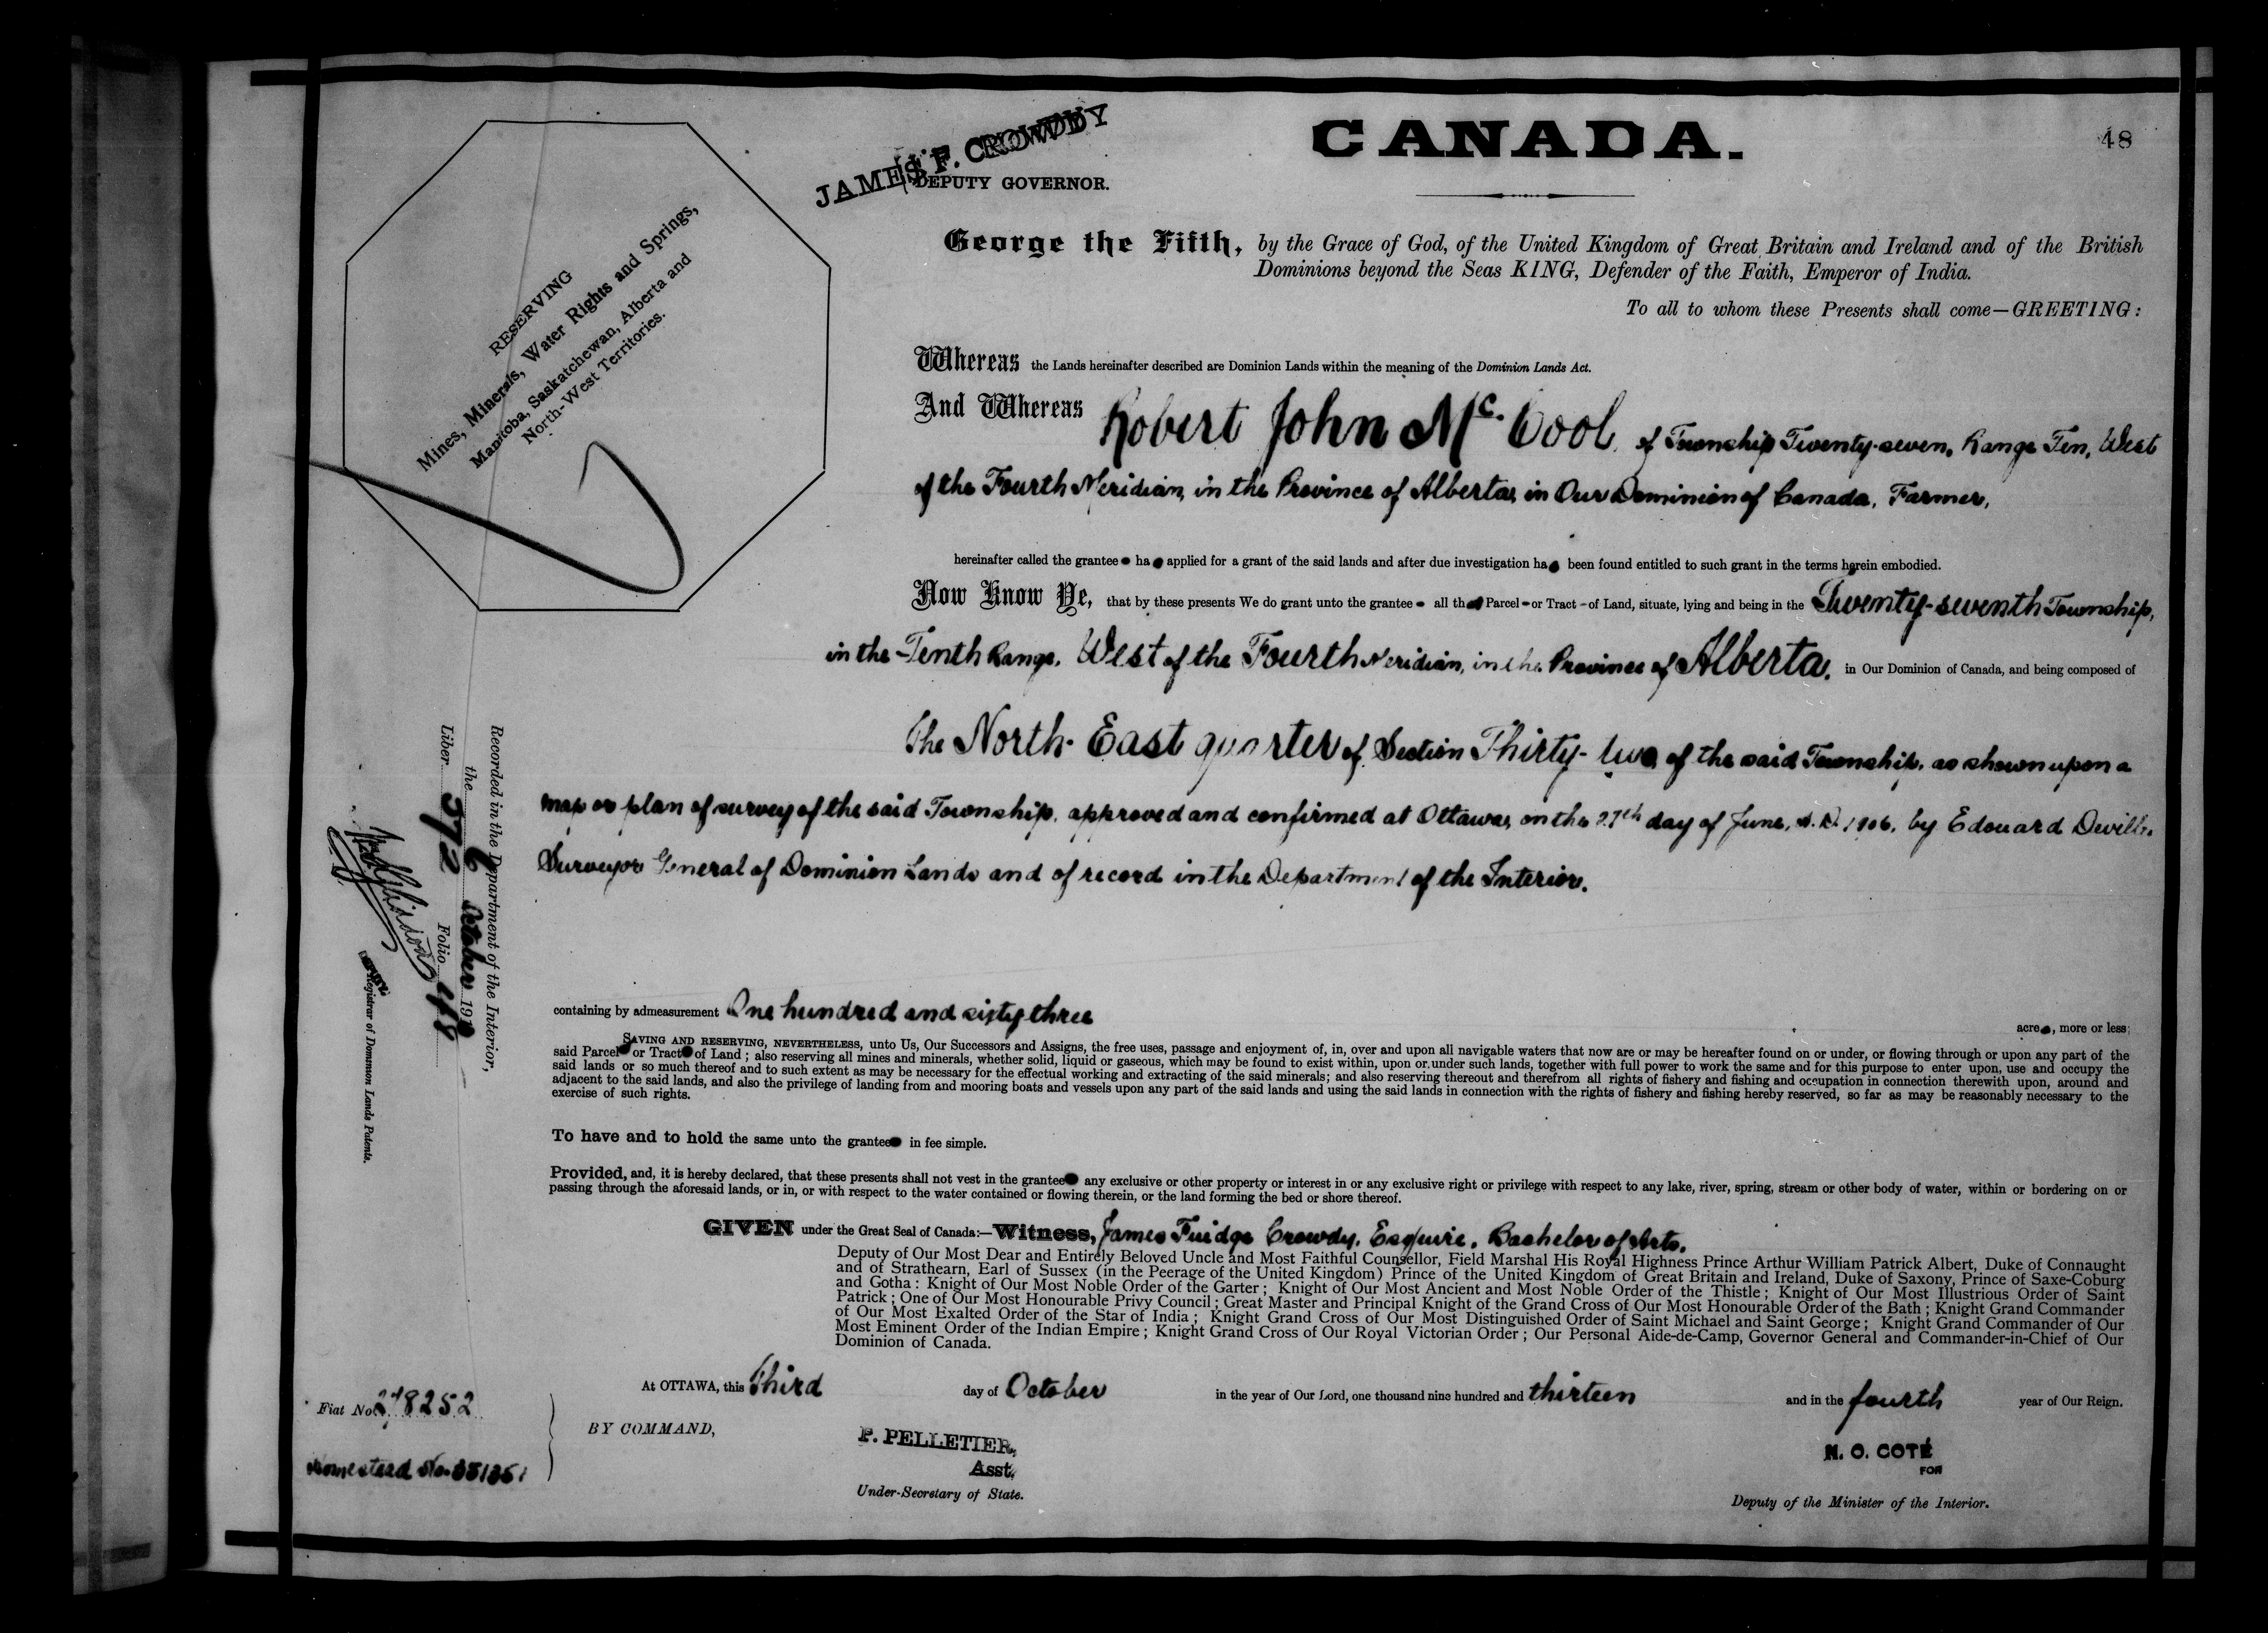 CANADA.
48
JAMES F. CROWDY
DEPUTY GOVERNOR.
RESERVING
Mines, Minerals, Water Rights and Springs,
Manitoba, Saskatchewan, Alberta and
North-West Territories.
George the Fifth, by the Grace of God, of the United Kingdom of Great Britain and Ireland and of the British
Dominions beyond the Seas KING, Defender of the Faith, Emperor of India.
To all to whom these Presents shall come—GREETING:
Whereas the Lands hereinafter described are Dominion Lands within the meaning of the Dominion Lands Act.
And Whereas Robert John Mc. Cool, of Township Twenty-seven, Range Ten, West
of the Fourth Meridian, in the Province of Alberta, in Our Dominion of Canada, Farmer,
hereinafter called the grantee ha applied for a grant of the said lands and after due investigation ha been found entitled to such grant in the terms herein embodied.
Now Know Ye, that by these presents We do grant unto the grantee all that Parcel or Tract of Land, situate, lying and being in the Twenty-seventh Township,
in the Tenth Range, West of the Fourth Meridian, in the Province of Alberta, in Our Dominion of Canada, and being composed of
the North-East quarter of Section Thirty-two of the said Township, as shown upon a
map or plan of survey of the said Township, approved and confirmed at Ottawa, on the 27th day of June, A.D. 1906, by Edouard Deville,
Surveyor General of Dominion Lands and of record in the Department of the Interior.
containing by admeasurement One hundred and sixty three acres, more or less;
SAVING AND RESERVING, NEVERTHELESS, unto Us, Our Successors and Assigns, the free uses, passage and enjoyment of, in, over and upon all navigable waters that now are or may be hereafter found on or under, or flowing through or upon any part of the
said Parcel or Tract of Land; also reserving all mines and minerals, whether solid, liquid or gaseous, which may be found to exist within, upon or under such lands, together with full power to work the same and for this purpose to enter upon, use and occupy the
said lands or so much thereof and to such extent as may be necessary for the effectual working and extracting of the said minerals; and also reserving thereout and therefrom all rights of fishery and fishing and occupation in connection therewith upon, around and
adjacent to the said lands, and also the privilege of landing from and mooring boats and vessels upon any part of the said lands and using the said lands in connection with the rights of fishery and fishing hereby reserved, so far as may be reasonably necessary to the
exercise of such rights.
To have and to hold the same unto the grantee in fee simple.
Provided, and, it is hereby declared, that these presents shall not vest in the grantee any exclusive or other property or interest in or any exclusive right or privilege with respect to any lake, river, spring, stream or other body of water, within or bordering on or
passing through the aforesaid lands, or in, or with respect to the water contained or flowing therein, or the land forming the bed or shore thereof.
GIVEN under the Great Seal of Canada:—Witness, James Fuidge Crowdy, Esquire, Bachelor of Arts,
Deputy of Our Most Dear and Entirely Beloved Uncle and Most Faithful Counsellor, Field Marshal His Royal Highness Prince Arthur William Patrick Albert, Duke of Connaught
and of Strathearn, Earl of Sussex (in the Peerage of the United Kingdom) Prince of the United Kingdom of Great Britain and Ireland, Duke of Saxony, Prince of Saxe-Coburg
and Gotha: Knight of Our Most Noble Order of the Garter; Knight of Our Most Ancient and Most Noble Order of the Thistle; Knight of Our Most Illustrious Order of Saint
Patrick; One of Our Most Honourable Privy Council; Great Master and Principal Knight of the Grand Cross of Our Most Honourable Order of the Bath; Knight Grand Commander
of Our Most Exalted Order of the Star of India; Knight Grand Cross of Our Most Distinguished Order of Saint Michael and Saint George; Knight Grand Commander of Our
Most Eminent Order of the Indian Empire; Knight Grand Cross of Our Royal Victorian Order; Our Personal Aide-de-Camp, Governor General and Commander-in-Chief of Our
Dominion of Canada.
At OTTAWA, this Third day of October in the year of Our Lord, one thousand nine hundred and thirteen and in the fourth year of Our Reign.
BY COMMAND,
P. PELLETIER,
Asst.
Under-Secretary of State.
N. O. COTÉ
FOR
Deputy of the Minister of the Interior.
Recorded in the Department of the Interior,
the 6 October 191
Liber 372 Folio 48
Registrar of Dominion Lands Patents.
Fiat No. 278252
Homestead No.